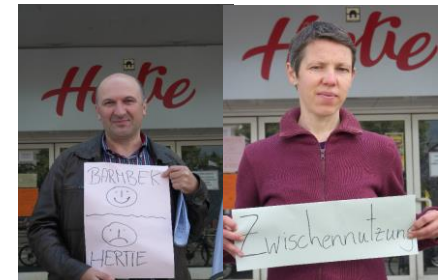 Hertie
BARMBEK
HERTIE
Hertie
Zwischennutzung